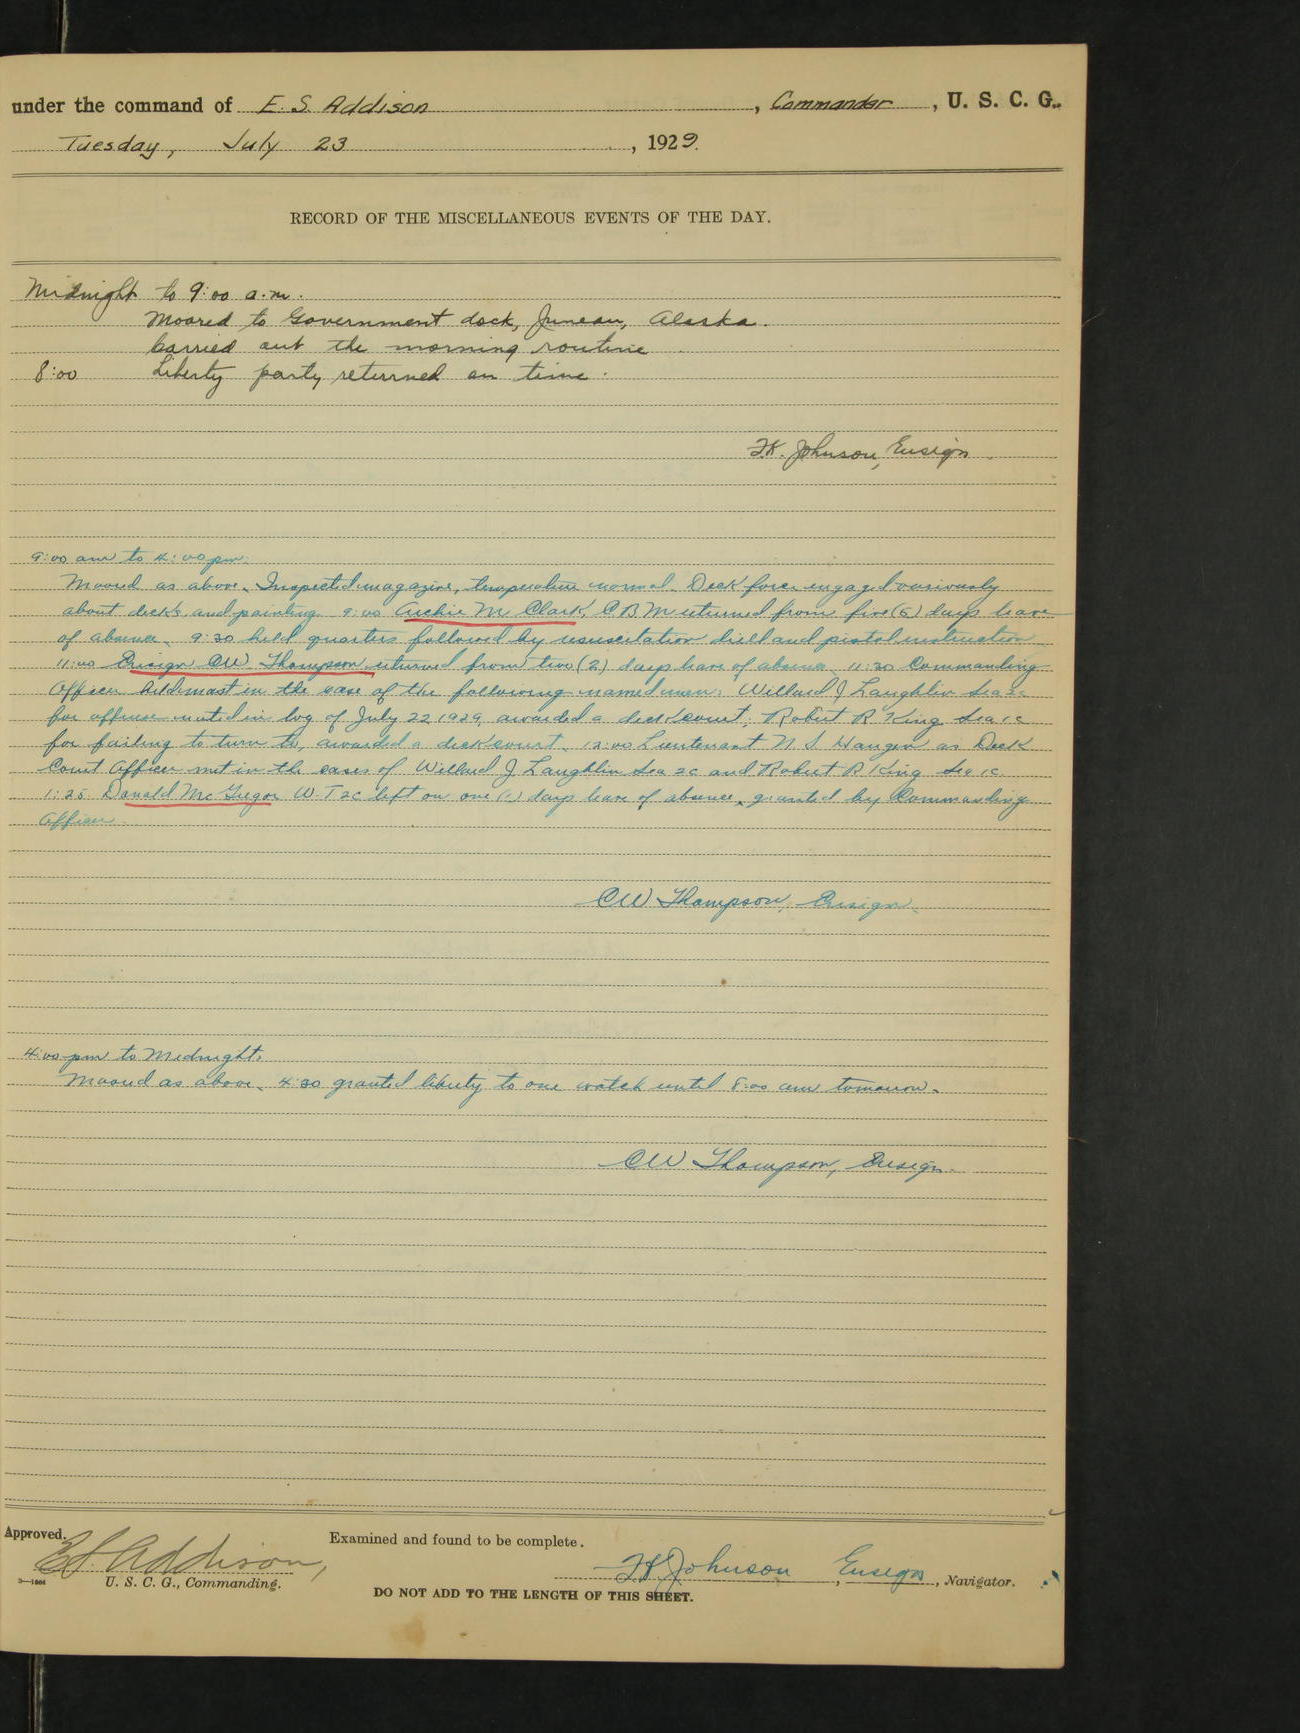 under the command of E. S. Addison, Commander, U. S. C. G.
Tuesday, July 23, 1929.
RECORD OF THE MISCELLANEOUS EVENTS OF THE DAY.
Midnight to 9:00 a.m.
Moored to Government dock, Juneau, Alaska.
Carried out the morning routine
8:00 Liberty party returned on time.
F.K. Johnson, Ensign
9:00 am to 4:00 pm.
Moored as above. Inspected magazine, temperature normal. Deck force engaged variously
about decks and painting. 9:00 Archie M Clark, C.B.M returned from five (5) days leave
of absence. 9:30 held quarters followed by resuscitation drill and pistol instruction
11:00 Ensign C.W. Thompson returned from two (2) days leave of absence. 11:30 Commanding
Officer held mast in the case of the following named men: Willard J Laughlin Sea 2c
for offense noted in log of July 22 1929, awarded a deck court; Robert R King Sea 1c
for failing to turn to, awarded a deck court. 13:00 Lieutenant N S Haugen as Deck
Court Officer met in the cases of Willard J Laughlin Sea 2c and Robert R King Sea 1c.
1:25 Donald McGregor W.T 2c left on one (1) days leave of absence, granted by Commanding
Officer.
CW Thompson, Ensign.
4:00 pm to Midnight.
Moored as above. 4:30 granted liberty to one watch until 8:00 am tomorrow.
CW Thompson, Ensign.
Approved.
Examined and found to be complete.
E S Addison,
F K Johnson, Ensign, Navigator.
U. S. C. G., Commanding.
DO NOT ADD TO THE LENGTH OF THIS SHEET.